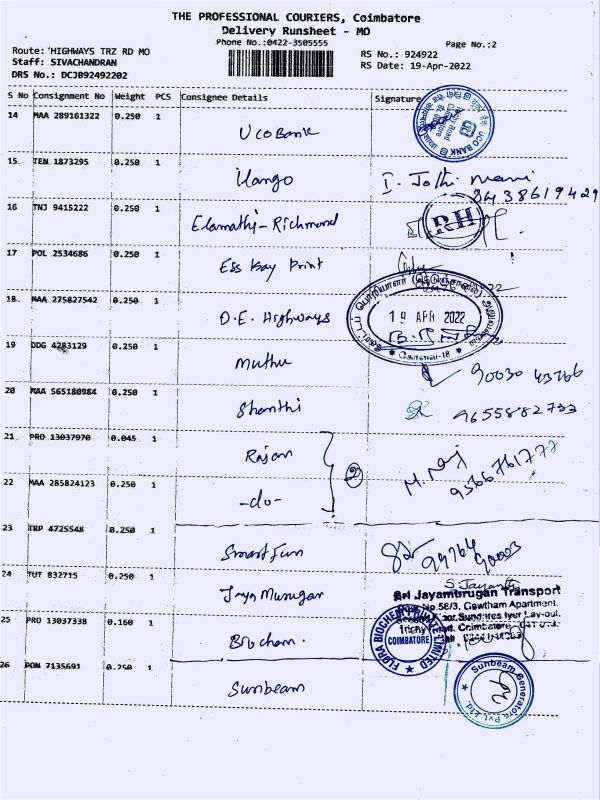 THE PROFESSIONAL COURIERS, Coimbatore
Delivery Runsheet - MO
Phone No.:0422-3505555
Page No.:2
Route: 'HIGHWAYS TRZ RD MO
RS No.: 924922
Staff: SIVACHANDRAN
RS Date: 19-Apr-2022
DRS No.: DCJB92492202
S No Consignment No Weight PCS Consignee Details Signature
14 MAA 289161322 0.250 1 UCO Bank
UCO BANK
15 TEN 1873295 0.250 1 Ilango I. Jothi mani
8438619429
16 TNJ 9415222 0.250 1 Elamathi - Richmond RH
17 POL 2534686 0.250 1 Ess Bay Print
18 MAA 275827542 0.250 1 D.E. Highways
19 APR 2022
கோவை-18
19 DDG 4283129 0.250 1 Muthu
90030 43766
20 MAA 565180984 0.250 1 Shanthi 9655882733
21 PRO 13037970 0.045 1 Rajan
2
M. Raj
9566761777
22 MAA 285824123 0.250 1 -do-
23 TRP 4725548 0.250 1 Smart Fun
99764 90003
24 TUT 832715 0.250 1 Jaya Murugan
S. Jayanthi
Sri Jayamurugan Transport
No.58/3, Gowtham Apartment,
Sundres Iyer Lay-out,
Trichy Road, Coimbatore
25 PRO 13037338 0.160 1 Biochem.
FLORA BIOCHEM LIMITED
COIMBATORE
26 PON 7135691 0.250 1 Sunbeam
Sunbeam Generators Pvt. Ltd.